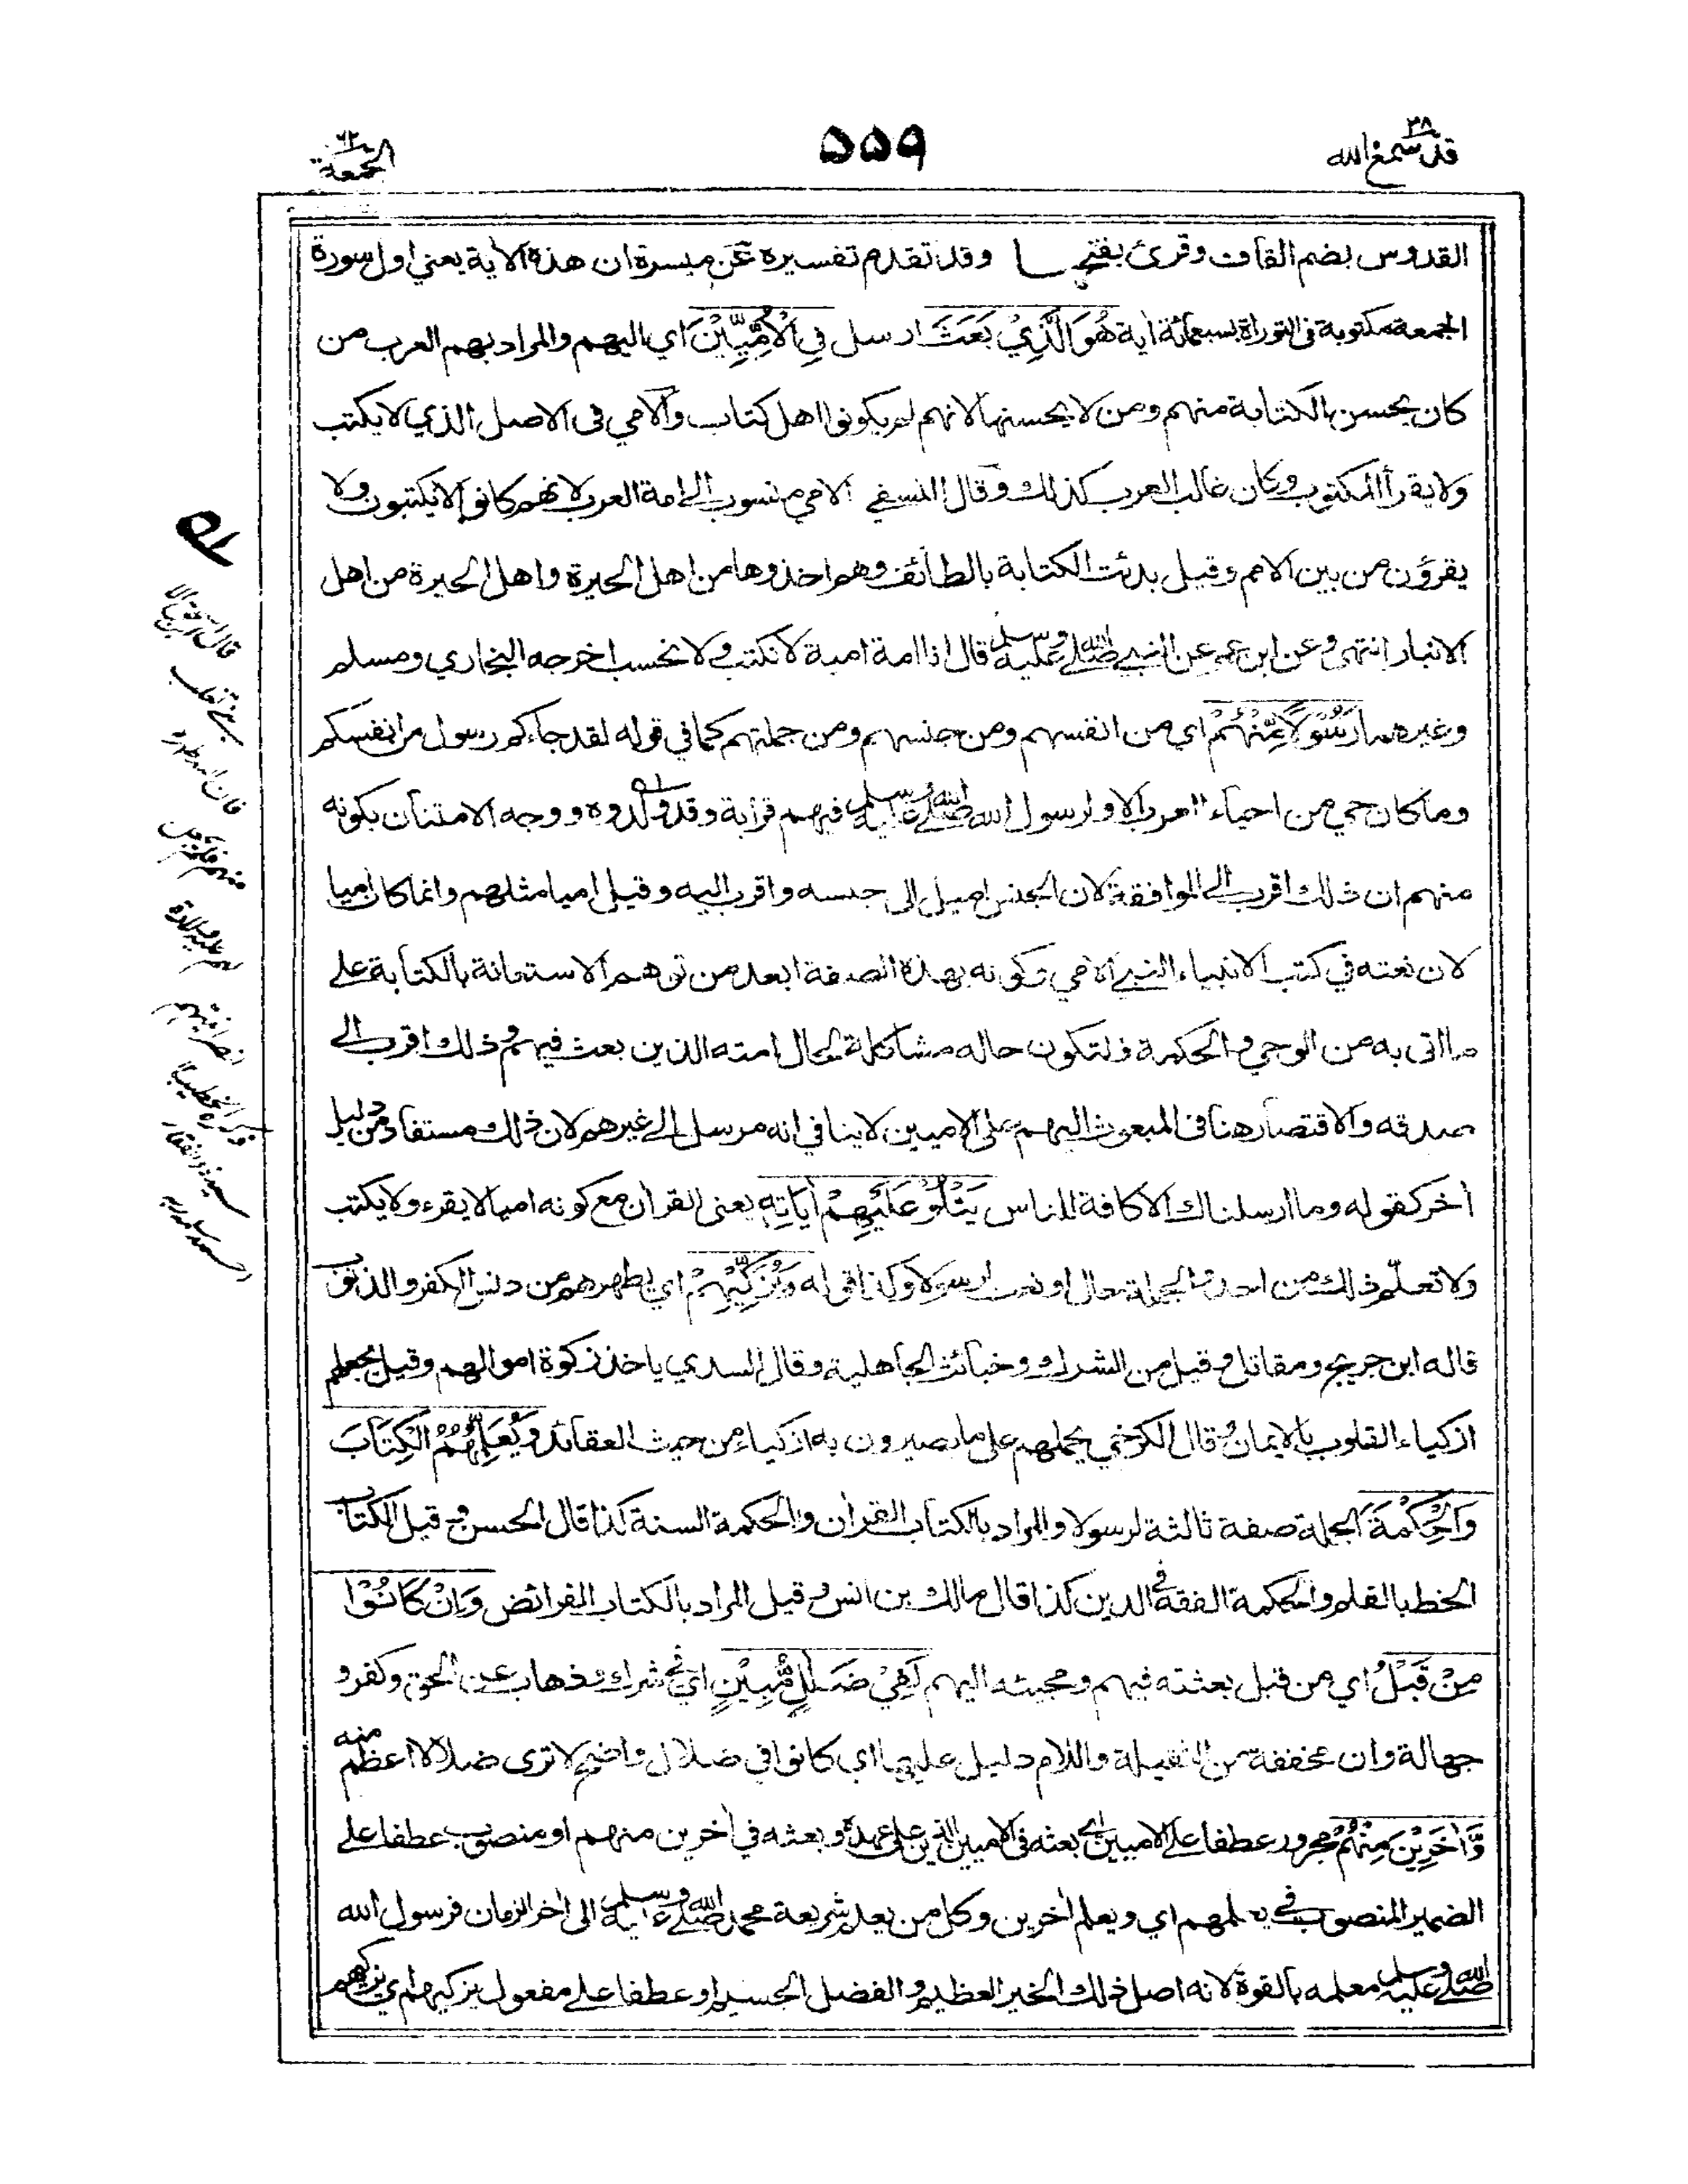 قد سمع الله ٢٨
٥٥٩
الجمعة ٦٢
القدوس بضم القاف وقرئ بفتحها وقد تقدم تفسيره عن ميسرة ان هذه الاية يعني اول سورة
الجمعة مكتوبة في التوراة بسبعمائة اية هُوَ الَّذِيْ بَعَثَ ارسل فِي الْأُمِّيِّيْنَ اي اليهم والمراد بهم العرب من
كان يحسن الكتابة منهم ومن لا يحسنها لانهم لم يكونوا اهل كتاب والامي في الاصل الذي لا يكتب
ولا يقرأ المكتوب وكان غالب العرب كذلك وقال النسفي الامي منسوب الى امة العرب لانهم كانوا لا يكتبون ولا
يقرؤن من بين الامم وقيل بدئت الكتابة بالطائف وهم اخذوها من اهل الحيرة واهل الحيرة من اهل
الانبار انتهى وعن ابن عمر عن النبي صلى الله عليه وسلم قال انا امة امية لا نكتب ولا نحسب اخرجه البخاري ومسلم
وغيرهما رَسُوْلًا مِّنْهُمْ اي من انفسهم ومن جنسهم ومن جملتهم كما في قوله لقد جاءكم رسول من انفسكم
وما كان حي من احياء العرب الا ولرسول الله صلى الله عليه وسلم فيهم قرابة وقد ولدوه ووجه الامتنان بكونه
منهم ان ذلك اقرب الى الموافقة لان الجنس اميل الى جنسه واقرب اليه وقيل اميا مثلهم وانما كان اميا
لان نعته في كتب الانبياء النبي الامي وكونه بهذه الصفة ابعد من توهم الاستعانة بالكتابة على
ما اتى به من الوحي والحكمة ولتكون حاله مشاكلة لحال امته الذين بعث فيهم وذلك اقرب الى
صدقه والاقتصار هنا في المبعوث اليهم على الاميين لا ينافي انه مرسل الى غيرهم لان ذلك مستفاد من دليل
أخر كقوله وما ارسلناك الا كافة للناس يَتْلُوْ عَلَيْهِمْ أيَاتِهِ يعني القرأن مع كونه اميا لا يقرء ولا يكتب
ولا تعلّم ذلك من احد والجملة حال او نعت لرسولا وكذا قوله وَيُزَكِّيْهِمْ اي يطهرهم من دنس الكفر والذنوب
قاله ابن جريج ومقاتل وقيل من الشرك وخبائث الجاهلية وقال السدي ياخذ زكوة اموالهم وقيل يجعلهم
ازكياء القلوب بالايمان وقال الكرخي يحملهم على ما يصيرون به ازكياء من حيث العقائد وَيُعَلِّمُهُمُ الْكِتَابَ
وَالْحِكْمَةَ الجملة صفة ثالثة لرسولا والمراد بالكتاب القرأن والحكمة السنة كذا قال الحسن وقيل الكتاب
الخط بالقلم والحكمة الفقه في الدين كذا قال مالك بن انس وقيل المراد بالكتاب الفرائض وَإِنْ كَانُوْا
مِنْ قَبْلُ اي من قبل بعثته فيهم ومجيئه اليهم لَفِيْ ضَلٰلٍ مُّبِيْنٍ اي في شرك وذهاب عن الحق وكفر و
جهالة وان مخففة من الثقيلة واللام دليل عليها اي كانوا في ضلال واضح لا ترى ضلالا اعظم منه
وَّأخَرِيْنَ مِنْهُمْ مجرور عطفا على الاميين اي بعثه في الاميين الذين على عهده وبعثه في أخرين منهم او منصوب عطفا على
الضمير المنصوب في يعلمهم اي ويعلم أخرين وكل من يعلم شريعة محمد صلى الله عليه وسلم الى أخر الزمان فرسول الله
صلى الله عليه وسلم معلمه بالقوة لانه اصل ذلك الخير العظيم والفضل الجسيم او عطفا على مفعول يزكيهم اي يزكيهم